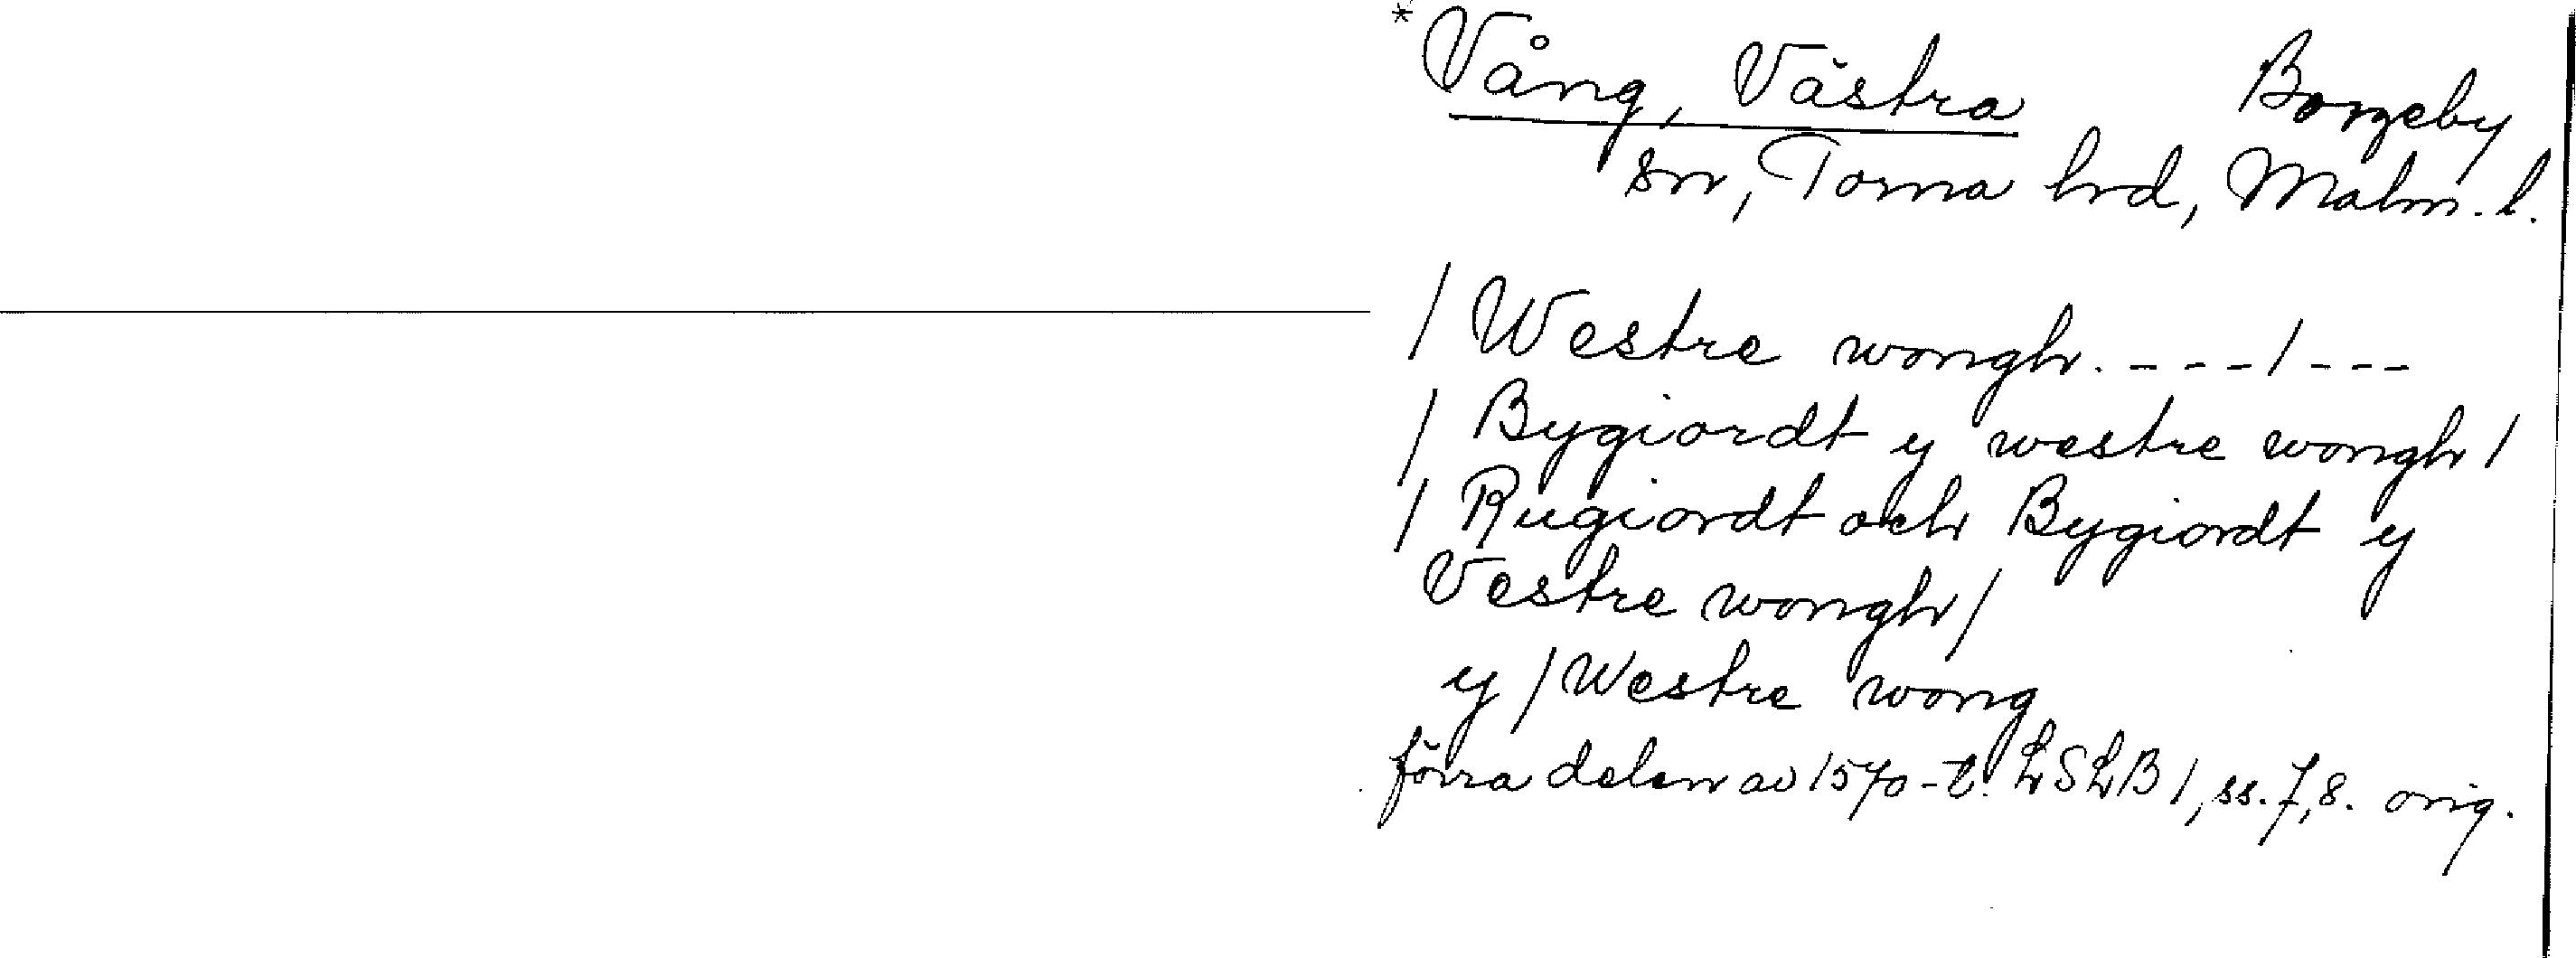 * Vång, Västra Borgeby
sn, Torna hrd, Malm. l.
/ Westre wongh. - - - / - - -
/ Bygiordt y westre wongh /
/ Rugiordt och Bygiordt y
Vestre wongh /
y / Westre wong
förra delen av 1570-t. LSLB 1, ss. 7, 8. orig.